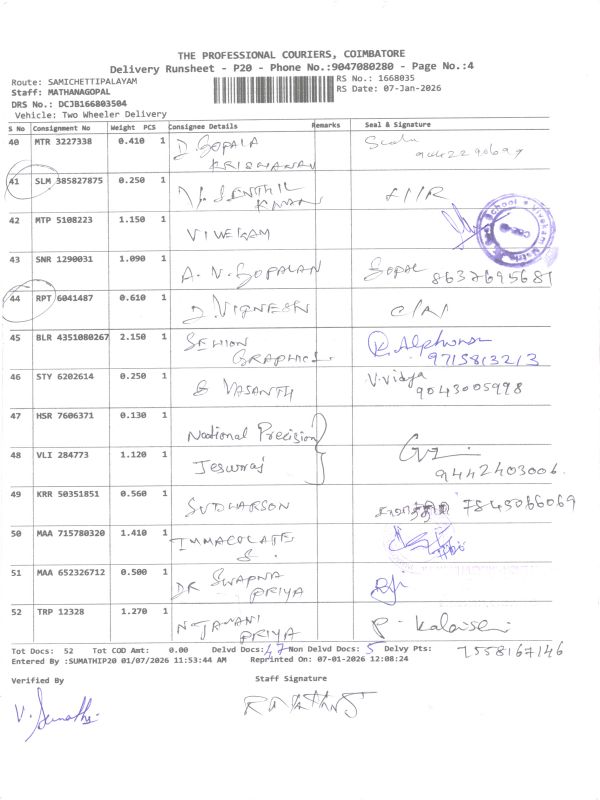 THE PROFESSIONAL COURIERS, COIMBATORE
Delivery Runsheet - P20 - Phone No.:9047080280 - Page No.:4
Route: SAMICHETTIPALAYAM
RS No.: 1668035
Staff: MATHANAGOPAL
RS Date: 07-Jan-2026
DRS No.: DCJB166803504
Vehicle: Two Wheeler Delivery
S No Consignment No Weight PCS Consignee Details Remarks Seal & Signature
40 MTR 3227338 0.410 1 D. GOPALA
KRISHNAN
41 SLM 385827875 0.250 1 SENTHIL
KUMAR
42 MTP 5108223 1.150 1 VIVEKAM
School * Vivekam Matric
43 SNR 1290031 1.090 1 A. V. GOPALAN Gopal
8637695681
44 RPT 6041487 0.610 1 D. VIGNESH
45 BLR 4351080267 2.150 1 SEHION
GRAPHICS. K. Alphonsa
9715813213
46 STY 6202614 0.250 1 G VASANTH V. Vidya
9043005998
47 HSR 7606371 0.130 1 National Precision
48 VLI 284773 1.120 1 Jeswaraj
9442403006.
49 KRR 50351851 0.560 1 SUDHARSON 7845066069
50 MAA 715780320 1.410 1 IMMACOLATE
S.
51 MAA 652326712 0.500 1 DR SWAPNA
PRIYA
52 TRP 12328 1.270 1 N. JAMANI
PRIYA P. Kalaiselvi
7558167146
Tot Docs: 52 Tot COD Amt: 0.00 Delvd Docs: 47 Non Delvd Docs: 5 Delvy Pts:
Entered By :SUMATHIP20 01/07/2026 11:53:44 AM Reprinted On: 07-01-2026 12:08:24
Verified By
Staff Signature
V. Sumathi